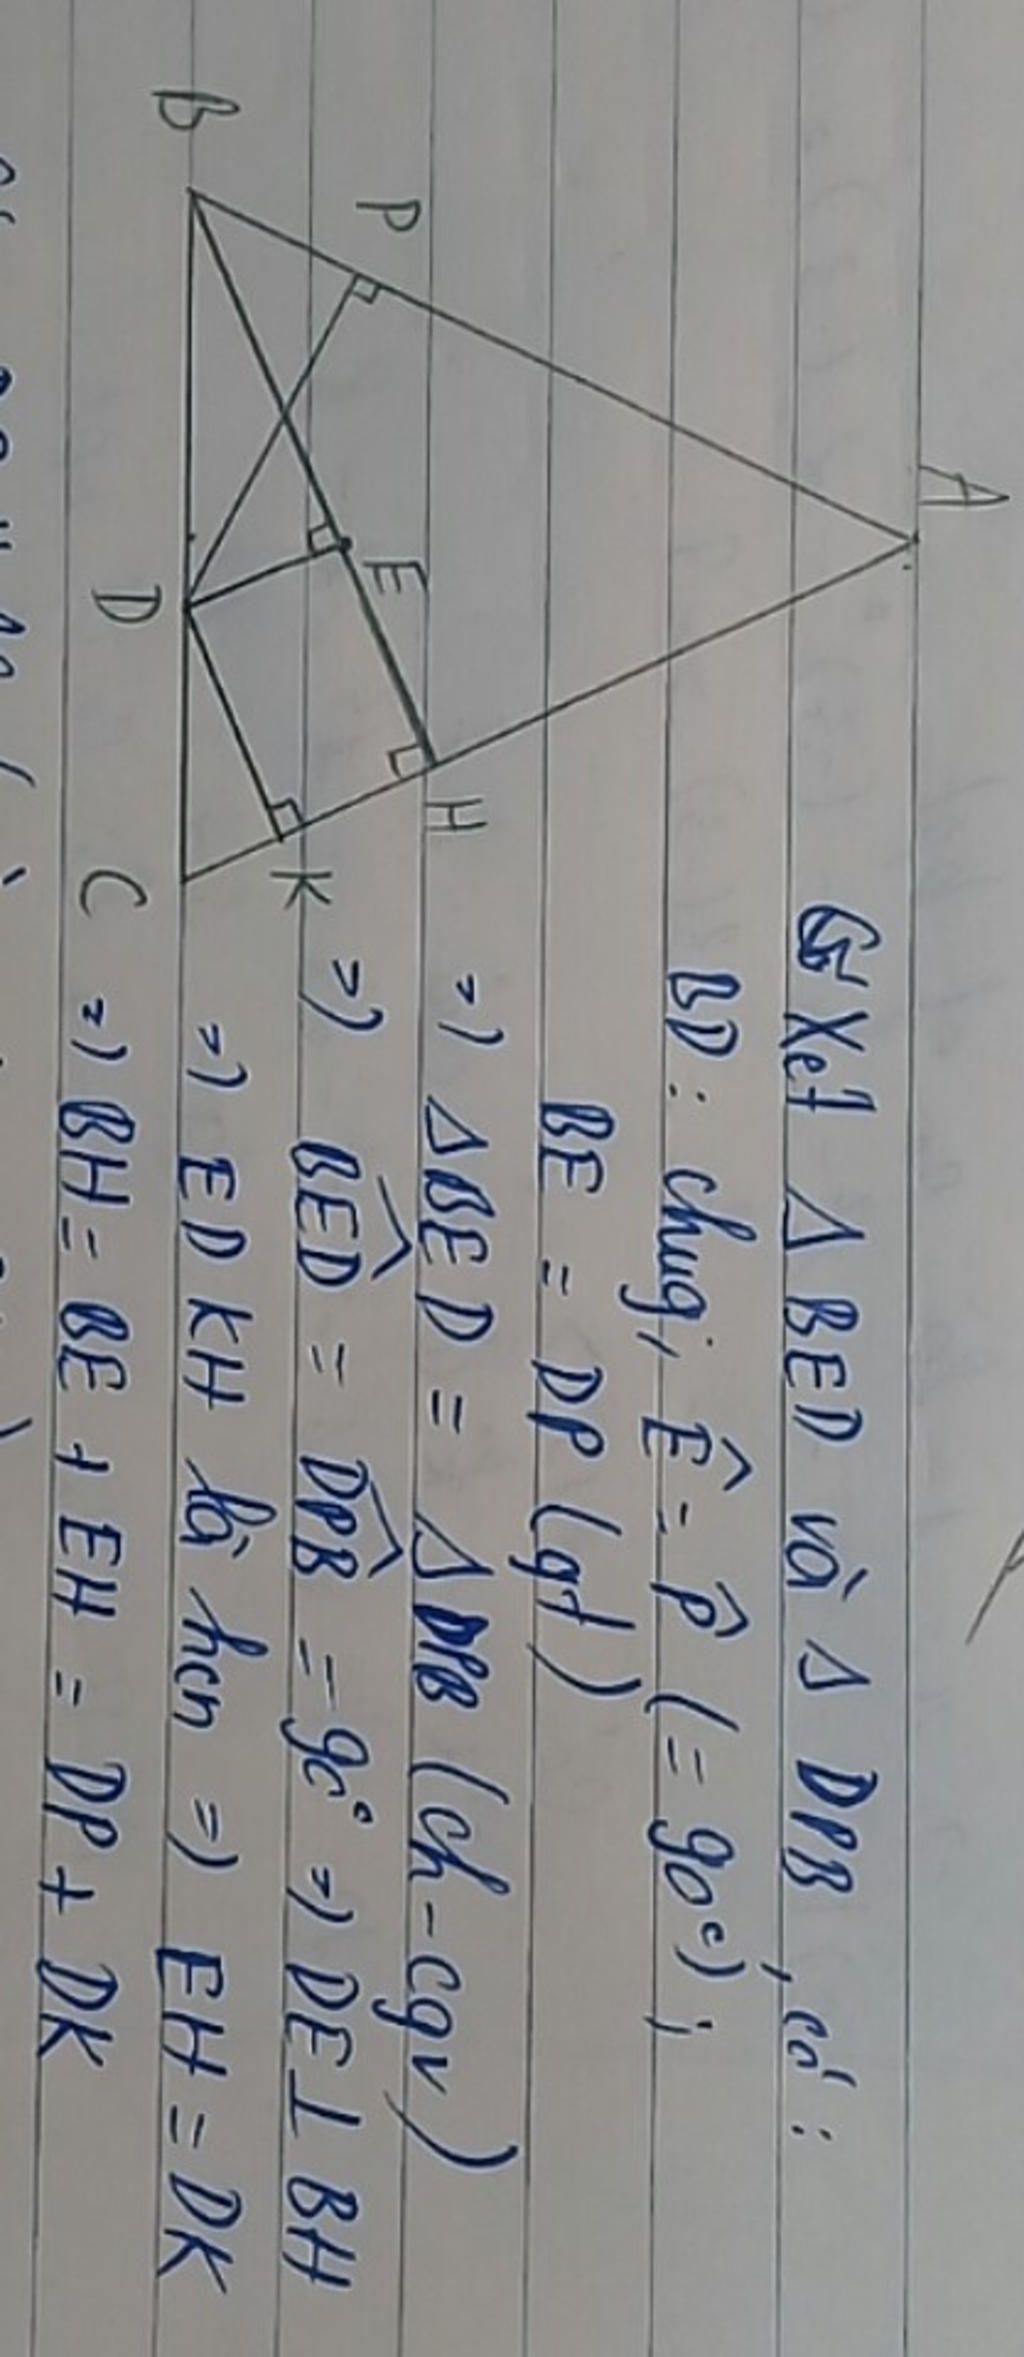 A
P
E
H
K
B
D
C
Xet Δ BED và Δ DPB, có :
BD : chug; Ê = P̂ (= 90°) ;
BE = DP (gt)
=) ΔBED = Δ DPB (ch-cgv)
=) BED = DPB = 90° =) DE ⊥ BH
=) EDKH là hcn =) EH = DK
=) BH = BE + EH = DP + DK